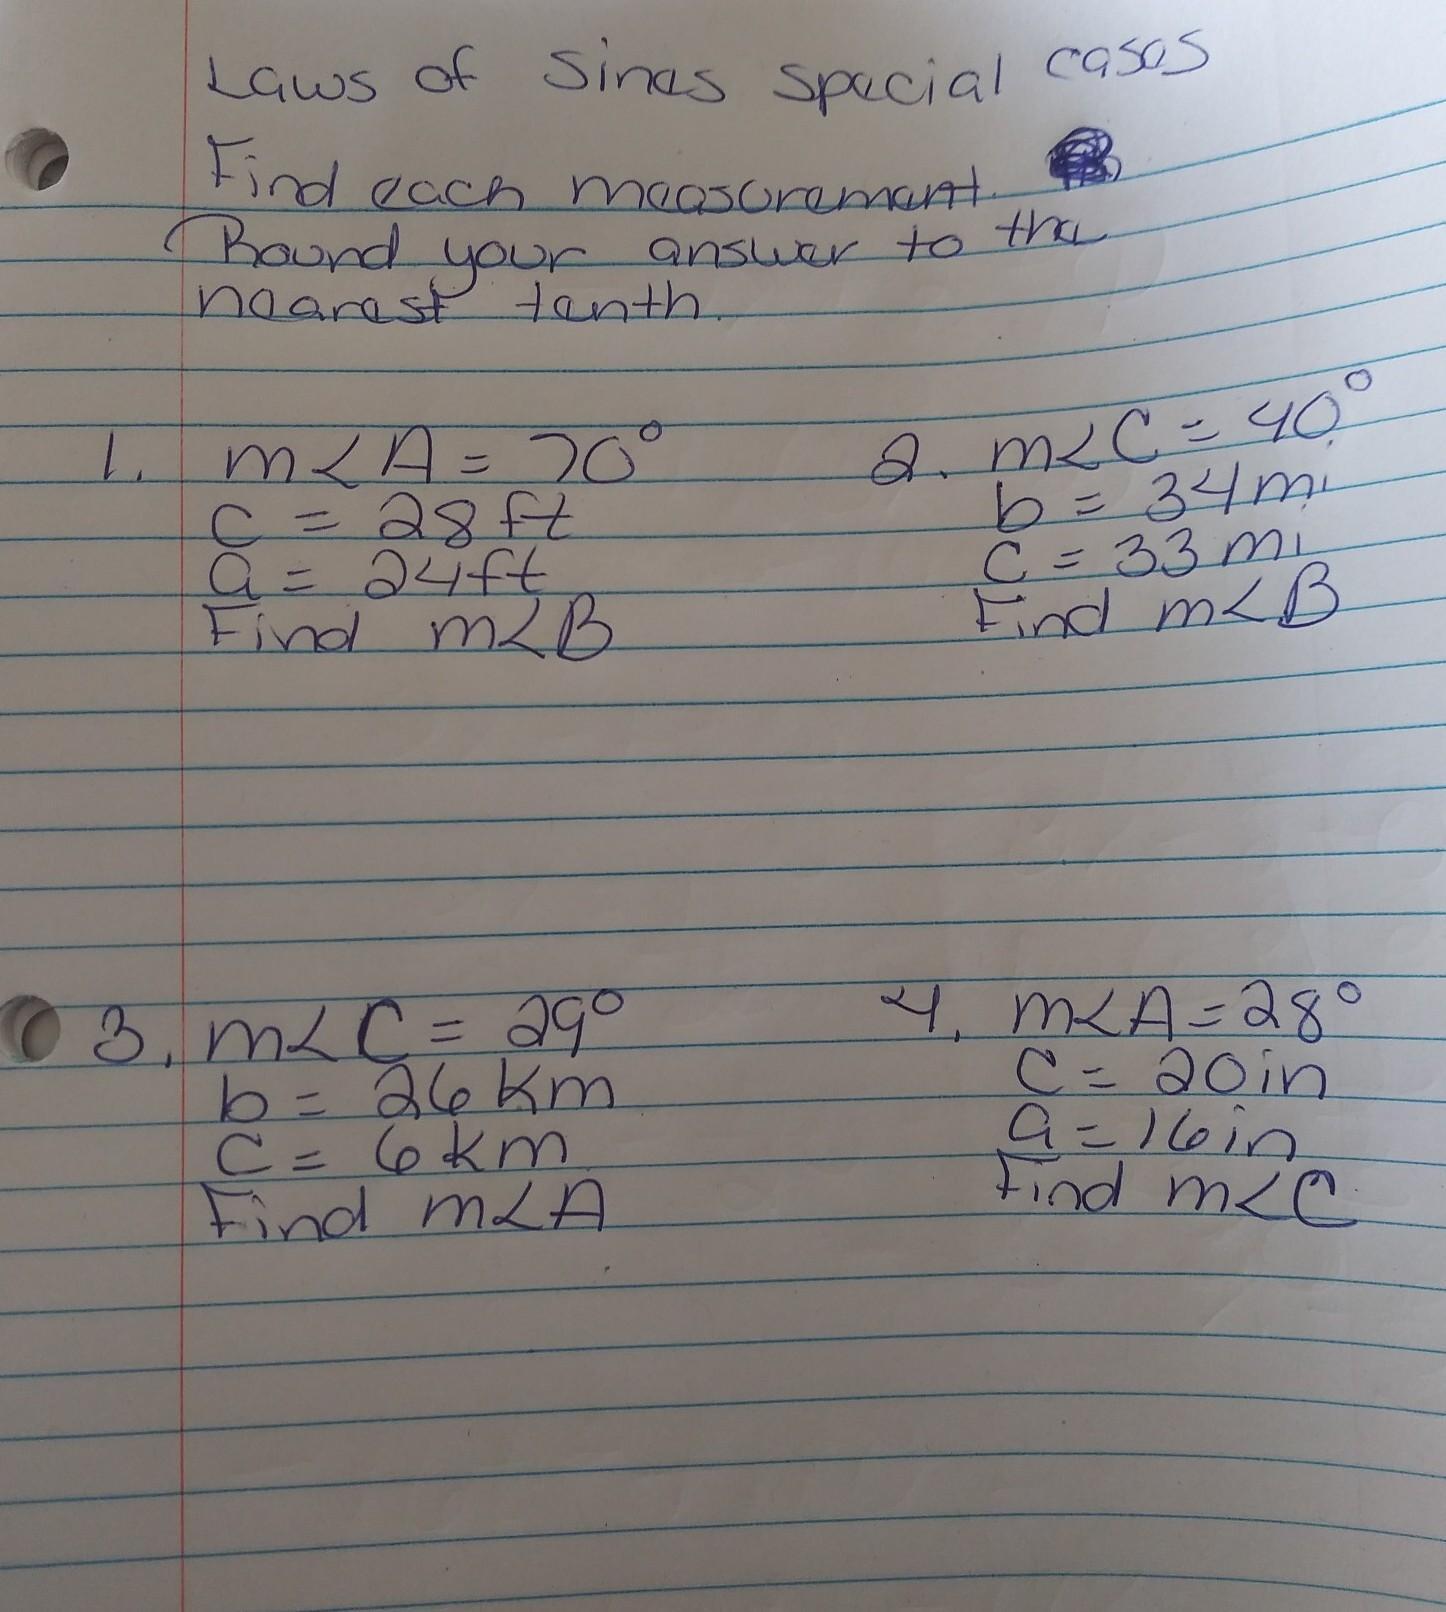 Laws of Sines special cases
Find each measurement.
Round your answer to the
nearest tenth.
1. m<A = 70°
c = 28 ft
a = 24 ft
Find m<B
2. m<C = 40°
b = 34 mi
c = 33 mi
Find m<B
3. m<C = 29°
b = 26 km
c = 6 km
Find m<A
4. m<A = 28°
c = 20 in
a = 16 in
Find m<C